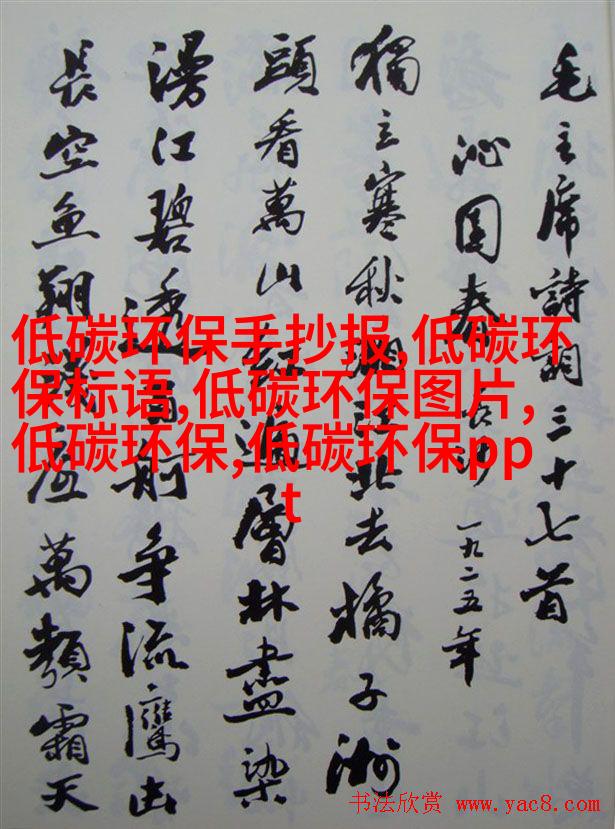 毛主席詩詞三十七首
沁园春 长沙 一九二五年
獨立寒秋湘江北去橘子洲
頭看萬山紅遍層林盡染
漫江碧透百舸争流鷹击
長空魚翔淺底萬類霜天
低碳环保手抄报,低碳环
保标语,低碳环保图片,
低碳环保,低碳环保pp
t
书法欣赏 www.yac8.com